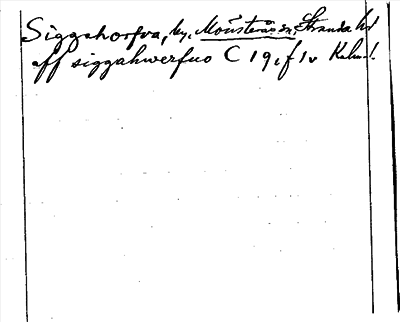 Siggahorfva, by, Mönsterås sn, Stranda hd
aff siggahwerfuo C 19, f 1v Kalm.l.